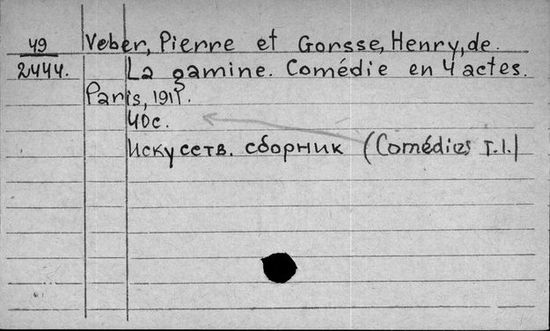 49 Veber, Pierre et Gorsse, Henry, de.
2444. La gamine. Comédie en 4 actes.
Paris,
40c.
Искусств. сборник (Comédies т.1.)